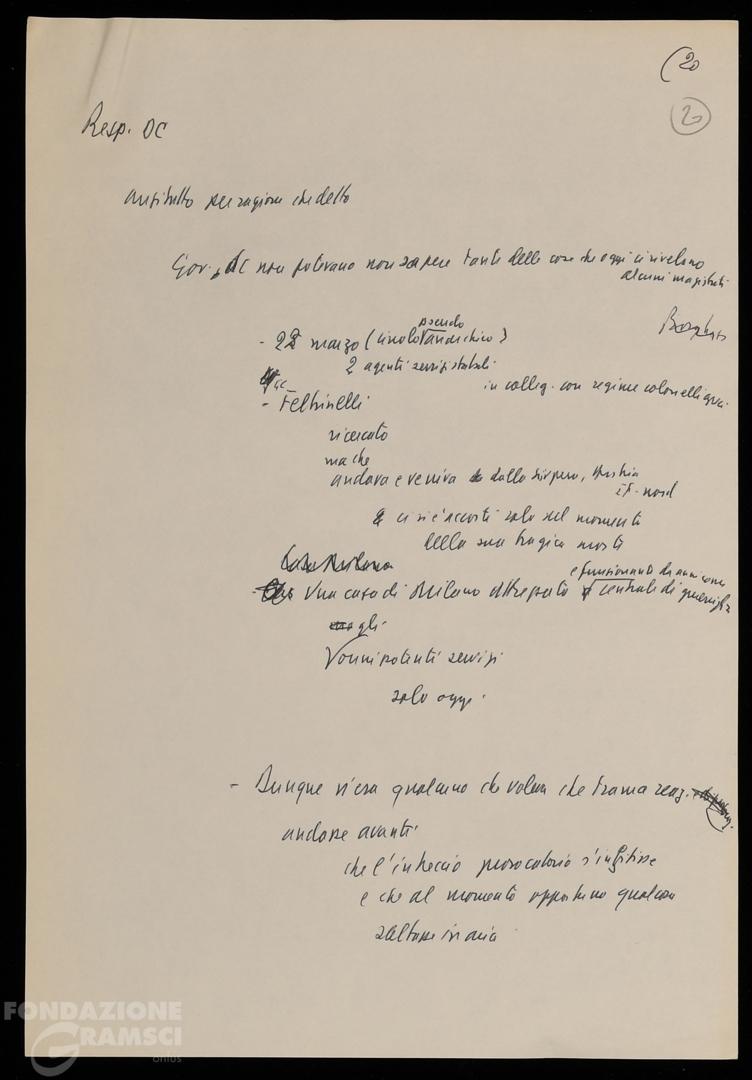 (20
20
Resp. DC
anzitutto per ragione che detto
Gov. DC non potevano non sapere tante delle cose che oggi ci rivelano
alcuni magistrati
Borghese
- 22 marzo (circolo pseudo anarchico)
2 agenti servizi statali
in colleg. con regime colonnelli greci
- Feltrinelli
ricercato
ma che
andava e veniva dalla Svizzera, Austria
it. nord
ci si è accorti solo nel momento
della sua tragica morte
- Una casa di Milano attrezzata e funzionante da anni come centrale di guerriglia
gli
onnipotenti servizi
solo oggi.
- Dunque v'era qualcuno che voleva che trama reaz.
andasse avanti
che l'intreccio provocatorio s'infittisse
e che al momento opportuno qualcosa
saltasse in aria
FONDAZIONE
GRAMSCI
onlus